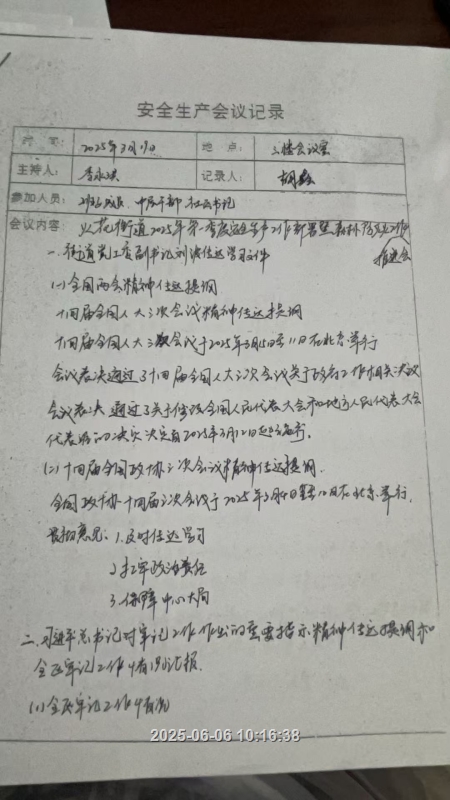 安全生产会议记录
时间： 2025年3月19日 地点： 三楼会议室
主持人： 李永洪 记录人：
参加人员： 班子成员、中层干部、社区书记
会议内容： 火花街道2025年第一季度安全生产工作部署暨森林防灭火工作
推进会
一、街道党工委副书记刘 传达学习文件
(一)全国两会精神传达提调
十四届全国人大三次会议精神传达提调
十四届全国人大三次会议于2025年3月5日至11日在北京举行
会议表决通过了十四届全国人大三次会议关于政府工作相关决议
会议表决通过了关于修改全国人民代表大会和地方人民代表大会
代表法的决定 决定自2025年3月12日起
(二)十四届全国政协三次会议精神传达提调.
全国政协十四届三次会议于2025年3月4日至10日在北京举行.
贯彻意见：1.及时传达学习
2.扛牢政治责任
3.保障中心大局
二、习近平总书记对 工作作出的重要指示精神传达提调和
工作情况汇报.
(一) 工作情况
2025-06-06 10:16:38